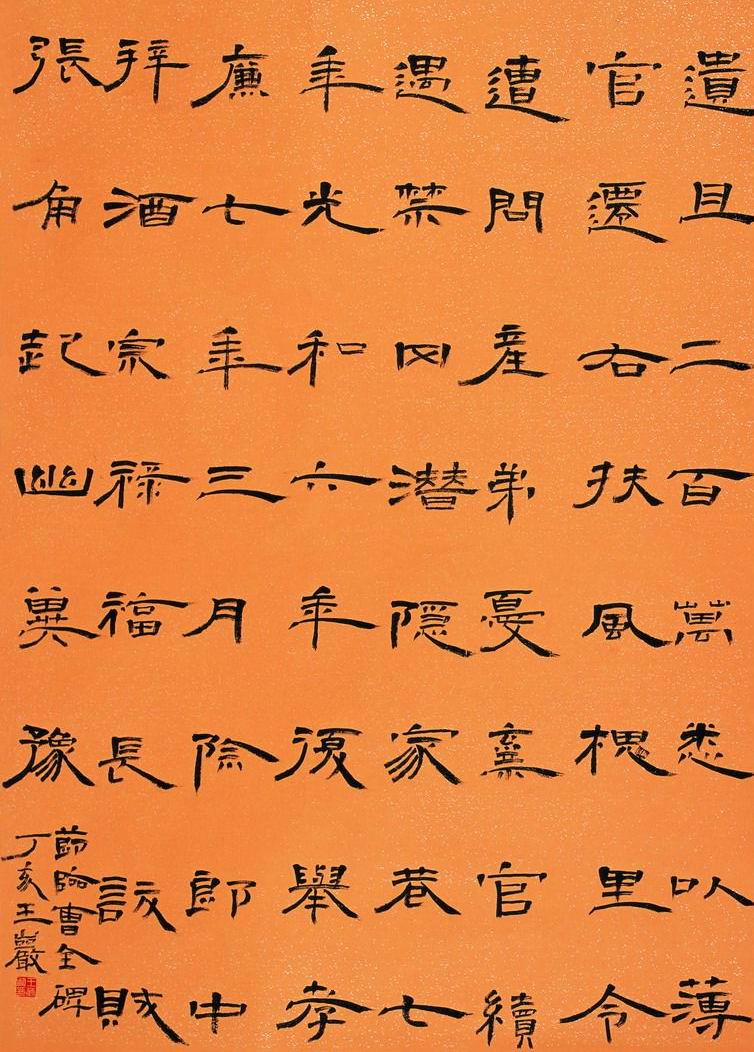 遺且二百萬悉以薄
官遷右扶風槐里令
遭問産弟憂棄官續
遇禁冈潛隱家巷七
年光和六年復舉孝
廉七年三月除郎中
拜酒泉祿福長訞賊
張角起幽冀豫
節臨曹全碑
丁亥王巖